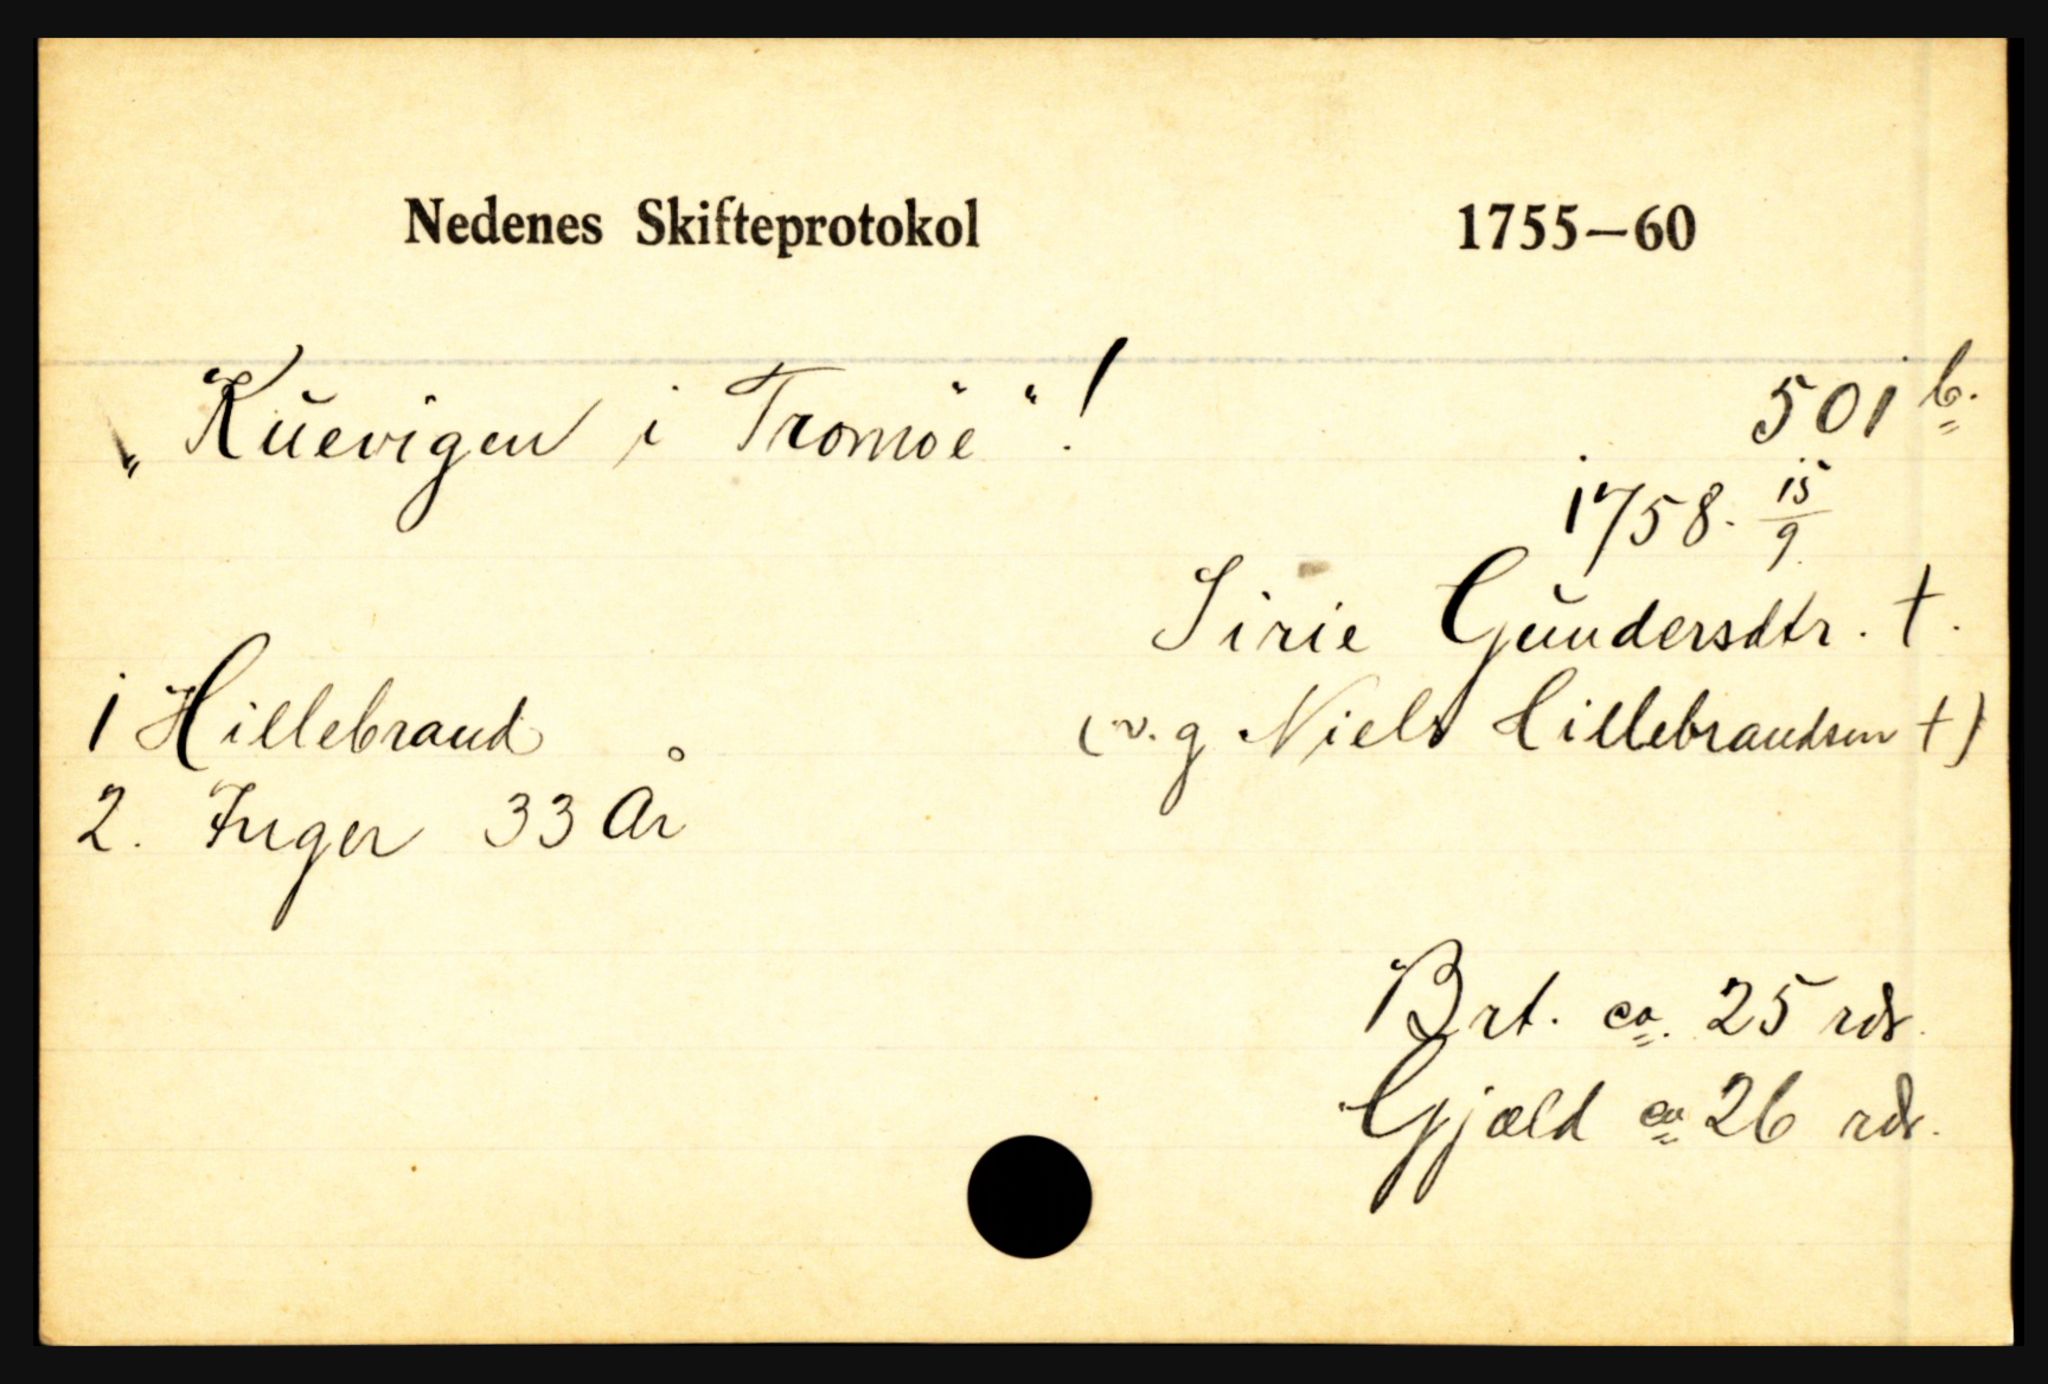 Nedenes Skifteprotokol 1755—60
„Kŭevigen i Tromöe“! 501 b.
1758. 15/9
Sirie Gŭndersdtr. †.
1 Hillebrand (v. g Niels Hillebrandsen †)
2. Inger 33 År
Brt. ca. 25 rdr.
Gjæld ca 26 rdr.